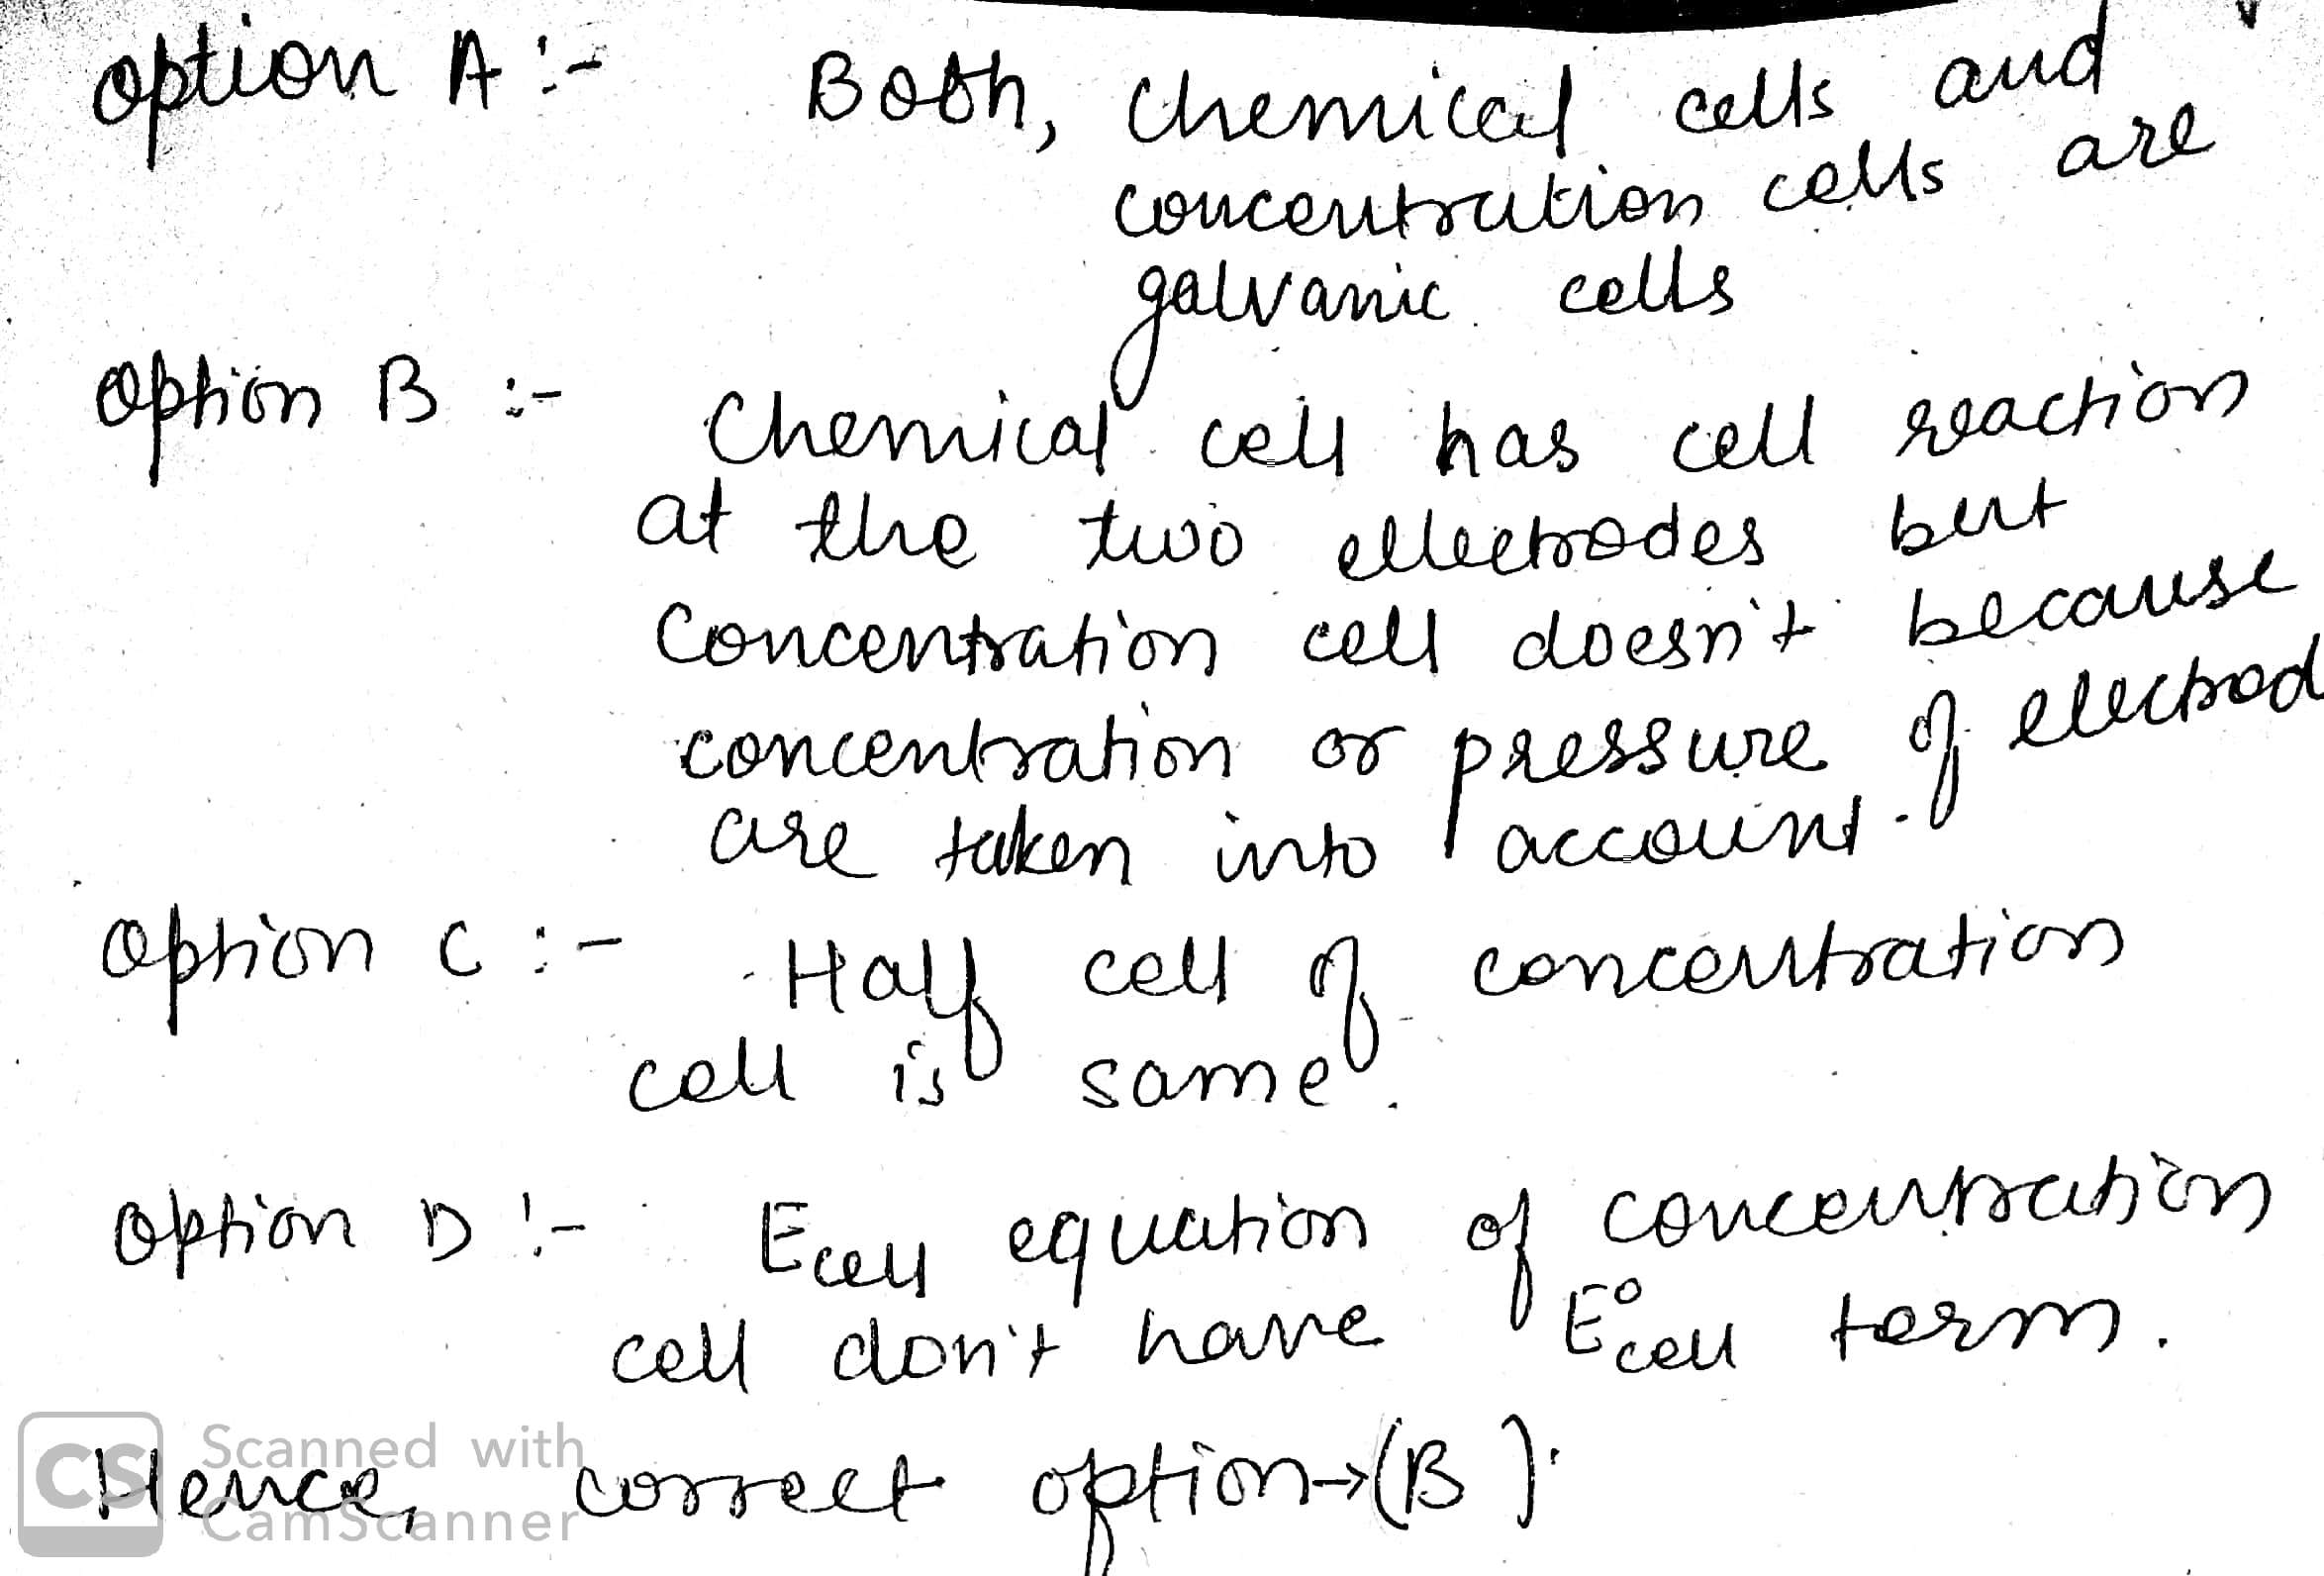 option A :- Both, chemical cells and
concentration cells are
galvanic cells
Option B :- Chemical cell has cell reaction
at the two electrodes but
Concentration cell doesn't because
concentration or pressure of electrod
are taken into account.
Option C :- Half cell of concentration
cell is same.
Option D :- Ecell equation of concentration
cell don't have E°cell term.
Hence, correct option→(B).
CS Scanned with
CamScanner